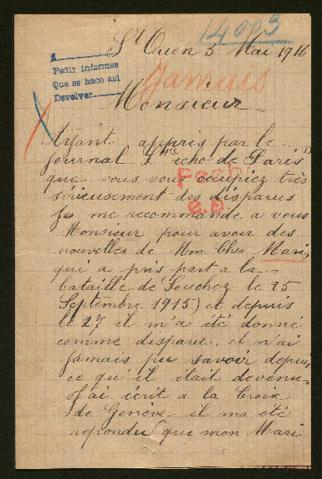 14003
St Ouen 3 Mai 1916
Pedir informes
Que se hace asi
Devolver
Jamais
Monsieur
Ayant appris par le
journal l'echo de Paris
que vous vous occupiez très
sérieusement des disparus
je me recommande a vous
Monsieur pour avoir des
nouvelles de Mon cher Mari
qui a pris part a la
bataille de Souchez le 25
Septembre 1915) et depuis
le 27 il m'a été donné
comme disparu. et n'ai
jamais pu savoir depuis
ce qu'il était devenu
J'ai écrit a la Croix
de Genève il m'a été
repondu que mon Mari